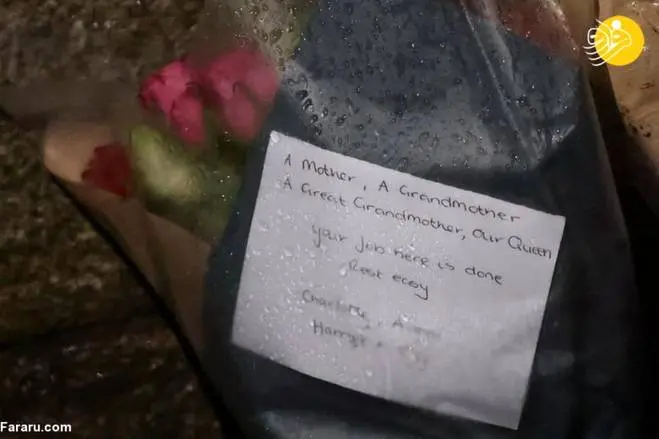 A Mother, A Grandmother
A Great Grandmother, Our Queen
your job here is done
Rest easy
Charlotte,
Fararu.com